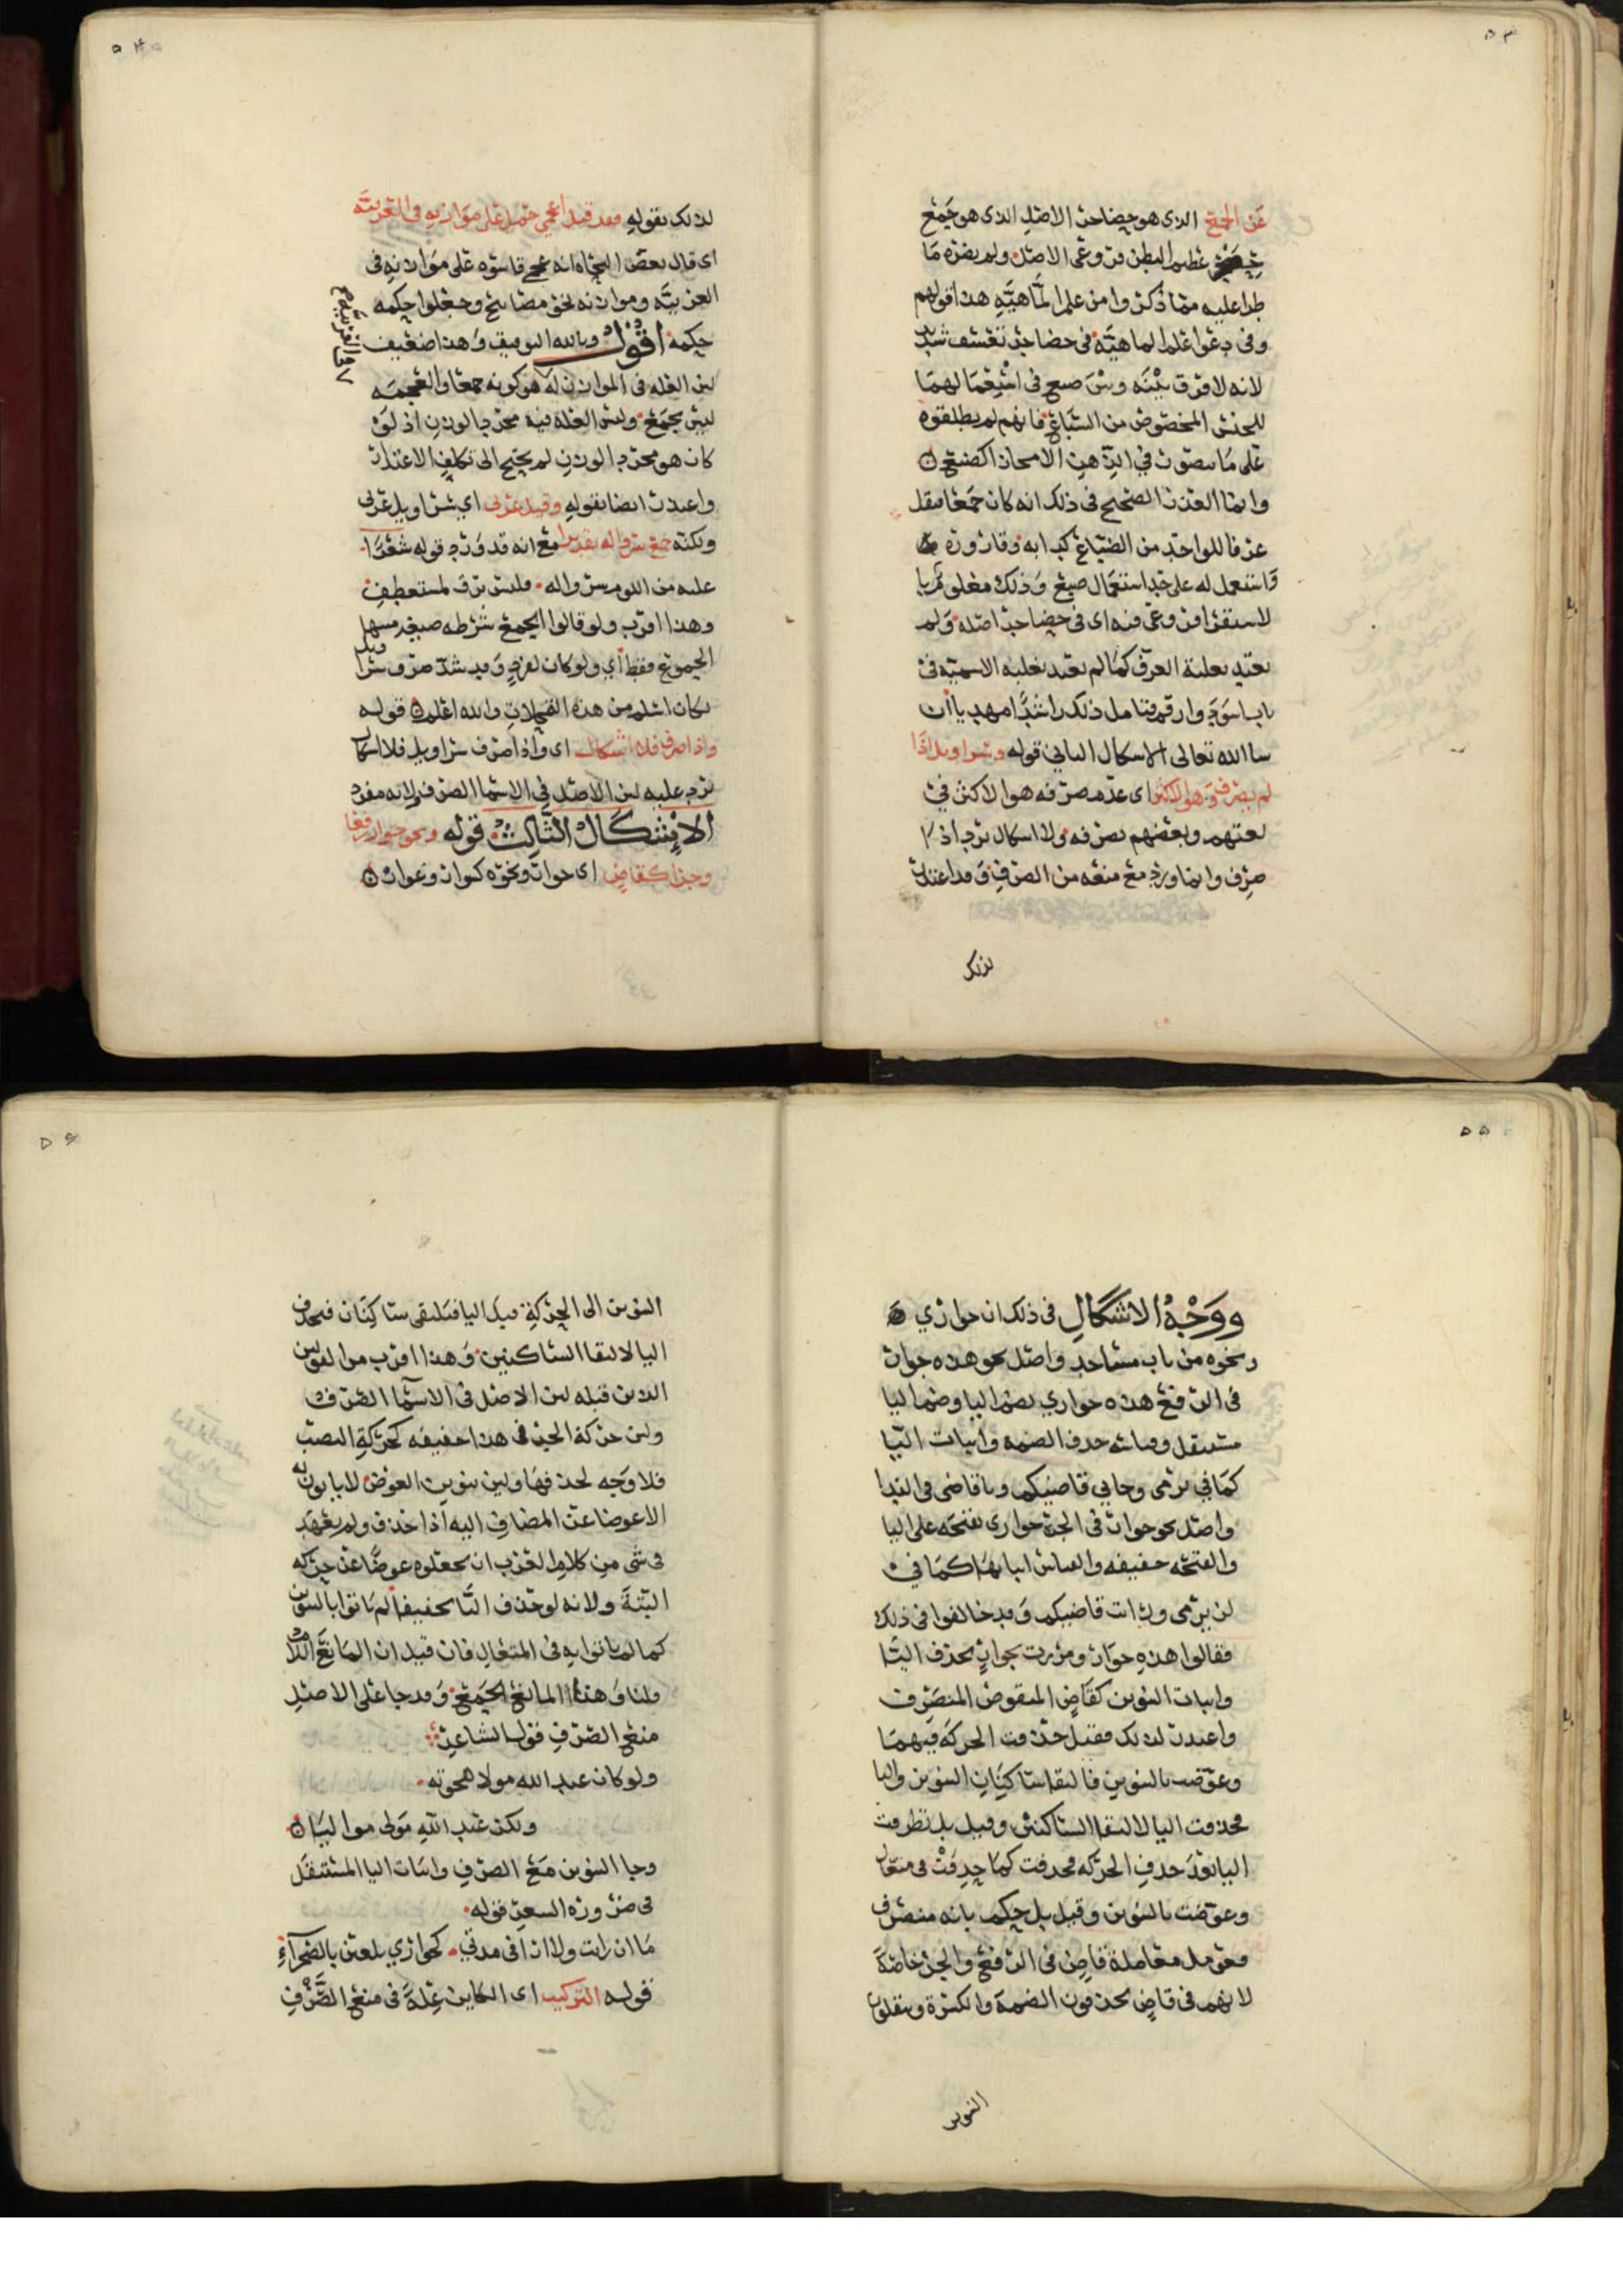 ٥٣
عن الجمع الذي هو حضاجر الاصل الذي هو جمع
عظيم البطن فروعي الاصل ولم يضره ما
طرا عليه مما ذكر وا من علم الماهية هذا قولهم
وفي دعوا علم الماهية في حضاجر تعسف شديد
لانه لا فرق بينه وبين ضبع في استعمالهما
للجنس المخصوص من السباع فانهم لم يطلقوه
على ما يتصور في الذهن الا مجازا كضبع
وانما العذر الصحيح في ذلك انه كان جمعا فنقل
عرفا للواحد من الضباع كبرا به وقارورة
واستعمل له على حد استعمال ضبع وذلك معلوم
لاستقرا فروعي فيه اي في حضاجر اصله ولم
يعتد بعلبة العرف كما لم يعتد بغلبة الاسمية في
باب اسود وارقم فتامل ذلك راشدا مهديا ان
شا الله تعالى الاشكال الثاني قوله وسراويل اذا
لم يصرف وهو الاكثر اي عدم صرفه هو الاكثر في
لغتهم وبعضهم يصرفه ولا اشكال يرد اذ
صرف وانما ورد مع منعه من الصرف وقد اعتذر
لذلك
٥٤
لذلك بقوله فقد قيل اعجمي حمل على موازنه في العربية
اي قال بعض النحاه انه عجمي قاسوه على موازنه في
العربيه وموازنه نحو مصابيح وجعلوا حكمه
حكمه اقول وبالله التوفيق وهذا ضعيف
لان العله في الموازن له هو كونه جمعا والعجمه
ليس بجمع وليس العله فيه مجرد الوزن اذ لو
كان هو مجرد الوزن لم يحتج الى تكلف الاعتذار
واعتذر ايضا بقوله وقيل عربي اي سراويل عربي
ولكنه جمع سرواله تقديرا مع انه قد ورد قوله شعرا
عليه من اللوم سرواله فليس يرق لمستعطف
وهذا اقرب ولو قالوا الجمع شرطه صيغه منتها
الجموع فقط اي ولو كان لفرد وقد شذ صرف سراويل
لكان اسلم من هذه التمحلات والله اعلم قوله
واذا صرف فلا اشكال اي واذا صرف سراويل فلا اشكال
يرد عليه لان الاصل في الاسما الصرف ولانه مفرد
الاشكال الثالث قوله ونحو جوار رفعا
وجرا كقاض اي جوار ونحوه كموار وغوار
٥٥
ووجه الاشكال في ذلك ان جواري
ونحوه من باب مساجد واصل نحو هذه جوار
في الرفع هذه جواري بضم اليا وضم اليا
مستثقل وقياسه حذف الضمه واثبات اليا
كما في يرمى وجاني قاضيكم ويا قاضي في الندا
واصل نحو جوار في الجر جواري بفتحه على اليا
والفتحه خفيفه والقياس اثباتها كما في
لن يرمى ورايت قاضيكم وقد خالفوا في ذلك
فقالوا هذه جوار ومررت بجوار بحذف اليا
واثبات التنوين كقاض المنقوص المنصرف
واعتذر لذلك فقيل حذفت الحركة فيهما
وعوضت بالتنوين فالتقا ساكنان التنوين واليا
فحذفت اليا لالتقا الساكنين وقيل بل تطرفت
اليا بعد حذف الحركه فحذفت كما حذفت في متعال
وعوضت بالتنوين وقيل بل حكم بانه منصرف
فعومل معاملة قاض في الرفع والجر خاصة
لانهم في قاض يحذفون الضمة والكسرة وينقلون
التنوين
٥٦
التنوين الى الحركة قبل اليا فيلتقي ساكنان فيحذف
اليا لالتقا الساكنين وهذا اقرب من القولين
الذين قبله لان الاصل في الاسما الصرف
ولان حركة الجر في هذا خفيفه كحركة النصب
فلا وجه لحذفها ولان تنوين العوض لا ياتون به
الا عوضا عن المضاف اليه اذا حذف ولم يعهد
في شي من كلام العرب ان يجعلوه عوضا عن حركه
البتة ولانه لو حذف اليا تخفيفا لم ياتوا بالتنوين
كما لم ياتوا به في المتعال فان قيل ان المانع اللام
قلنا وهنا المانع الجمع وقد جا على الاصل
منع الصرف قول الشاعر
ولو كان عبد الله مولا هجوته
ولكن عبد الله مولى مواليا
وجا التنوين مع الصرف واثبات اليا المستثقل
في ضرورة الشعر قوله
ما ان رايت ولا ارا في مدتي كجواري يلعبن بالصحرآء
قوله التركيب اي الكاين علة في منع الصرف